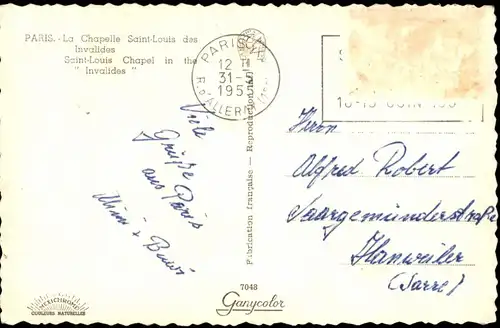 PARIS. - La Chapelle Saint-Louis des
Invalides
Saint-Louis Chapel in the
" Invalides "
PARIS
12 H
31-5
195
R. d'ALLERAY
10-19 JUIN 195
Viele
Grüße
aus Paris
Fabrication française - Reproduction
Herrn
Alfred Robert
Saargemünderstraße
Hanweiler
(Sarre)
HELIOCHROME
COULEURS NATURELLES
7048
Ganycolor